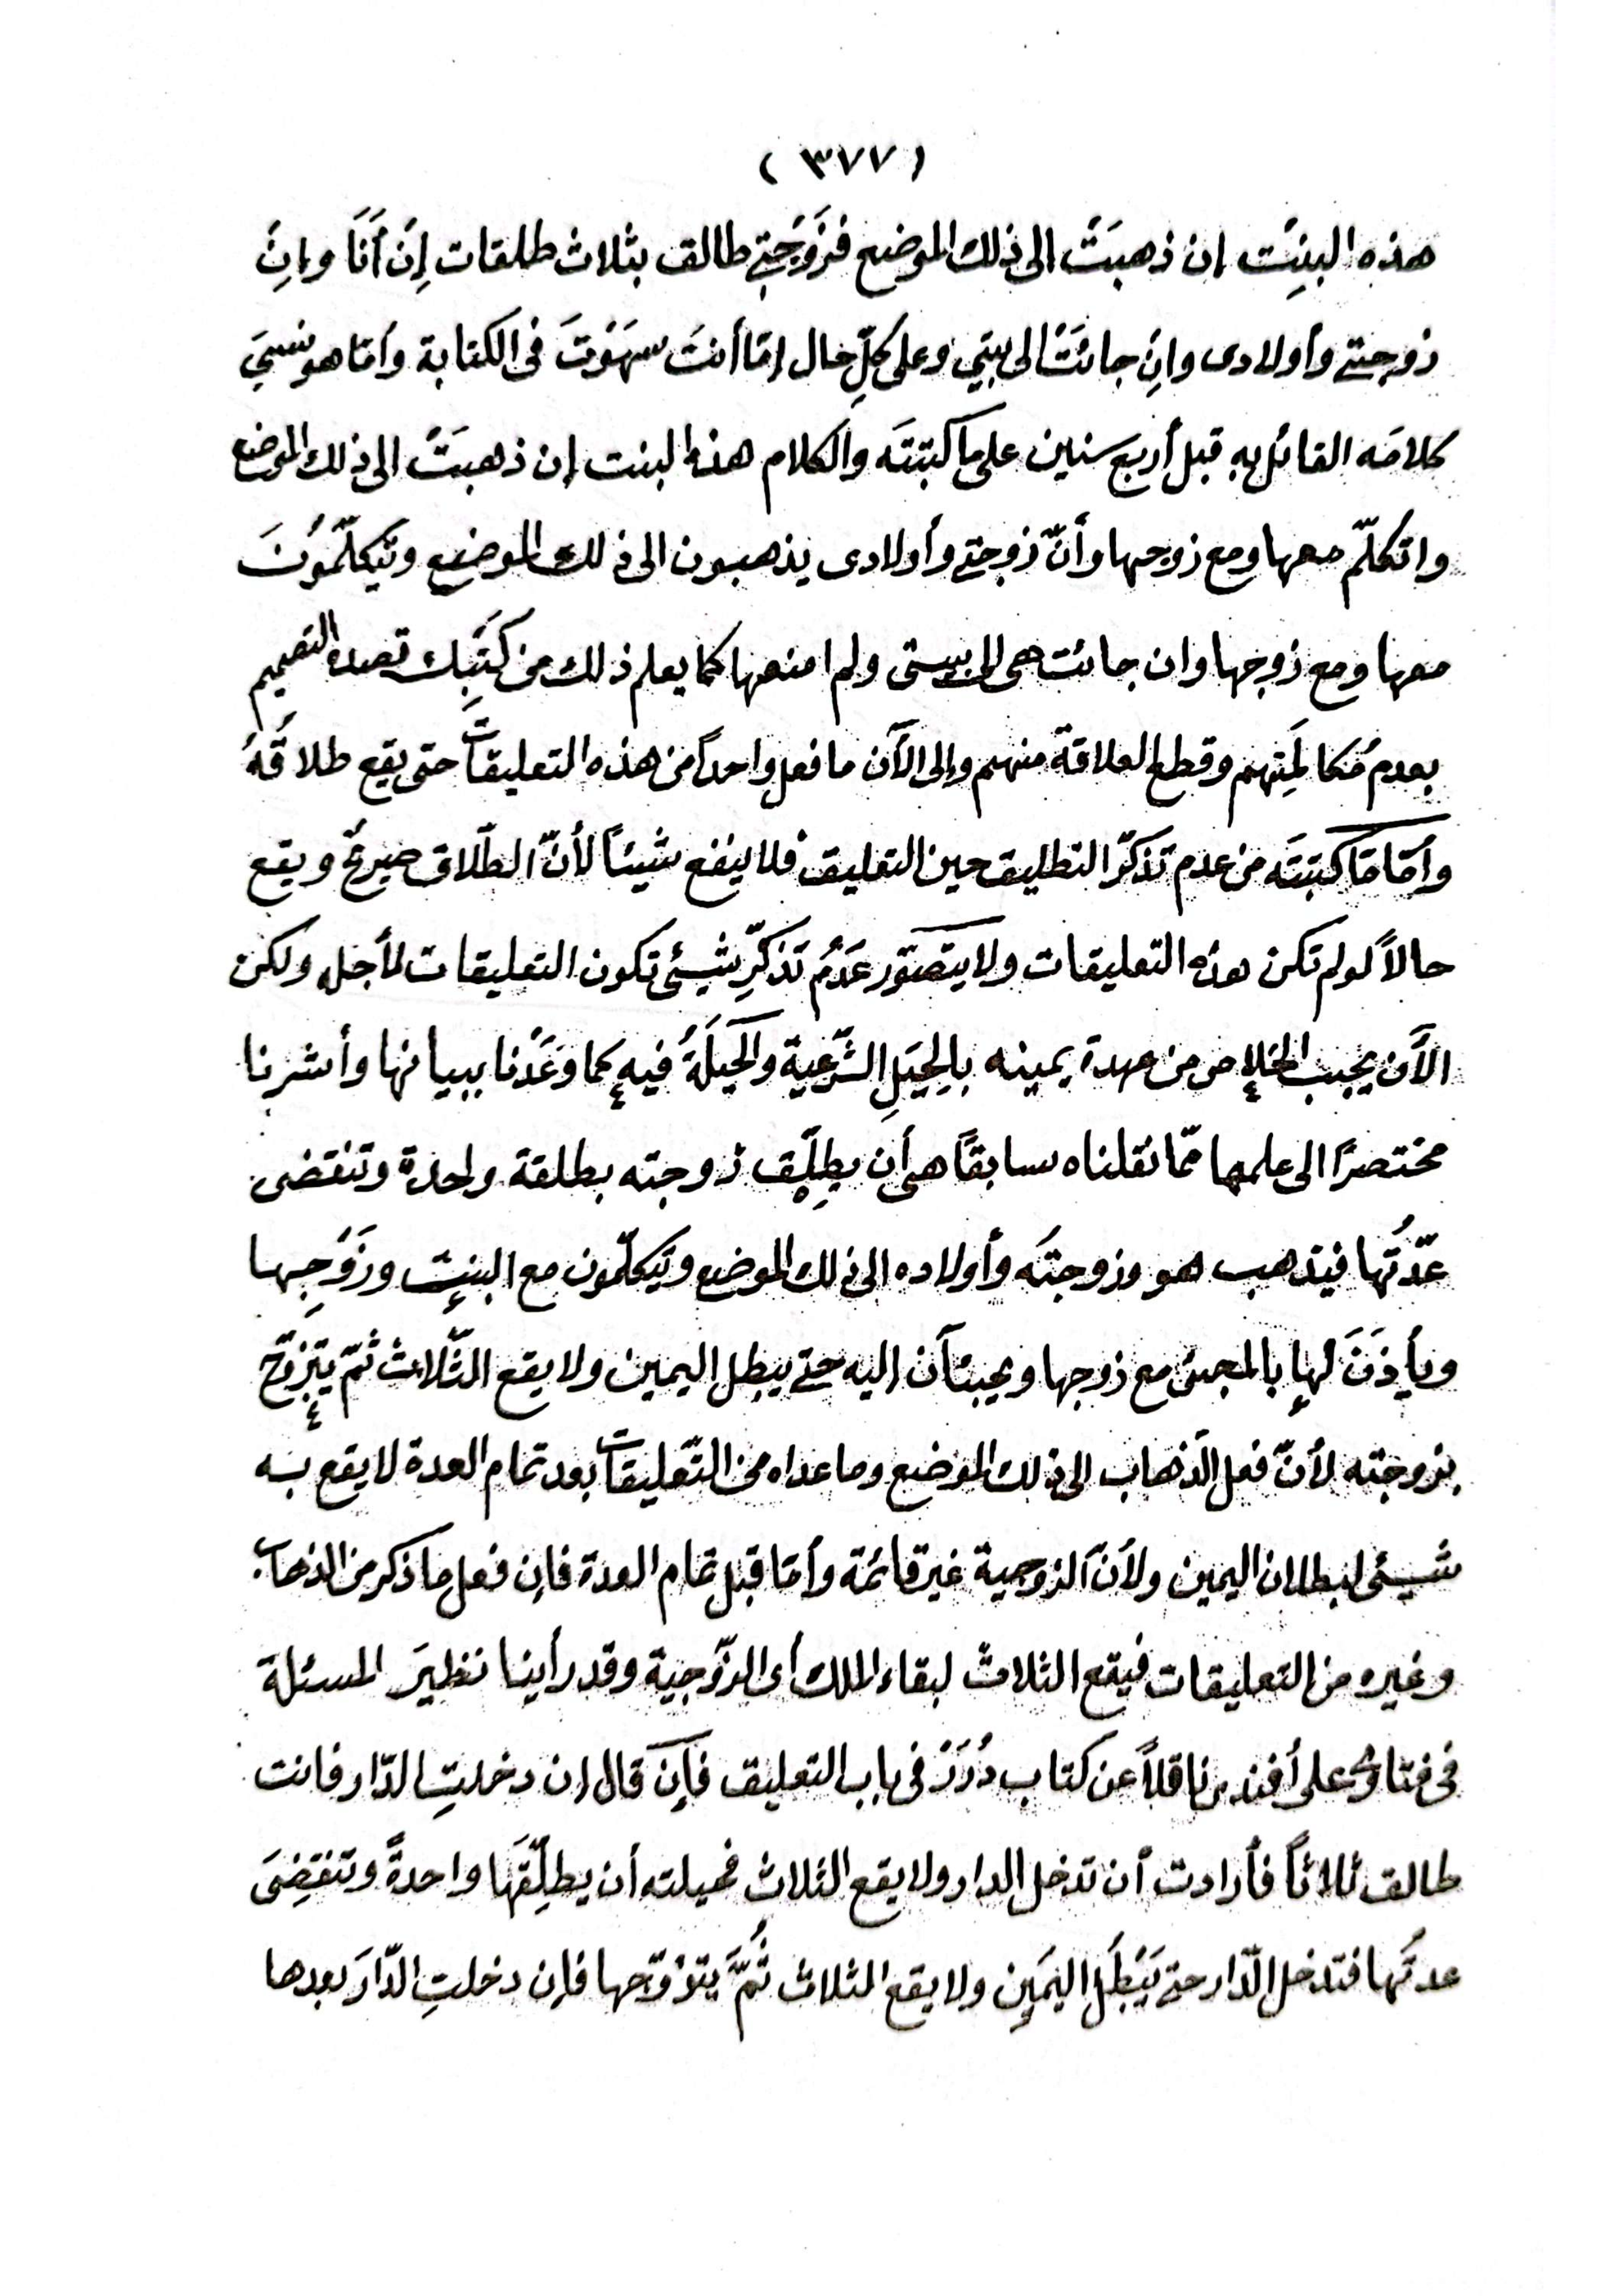 (٣٧٧)
هذه البنِت ان ذهبَتْ الى ذلك الموضع فزَوَجَتِي طالق بثلاث طلقات إِن أنَا وإنِ
زوجتي وأولادى وإنِ جائتْ الى بيتي وعلى كلِّ حال إمّا أنتَ سهَوْتَ فى الكتابة وأمّا هو نسِيَ
كلامَه القائل به قبل أربع سنين على ما كتبتَه والكلام هذه البنت إن ذهبَتْ الى ذلك الموضع
واتكلّم معها ومع زوجها وأنّ زوجتي وأولادى يذهبون الى ذلك الموضع ويتكلّمُونَ
معها ومع زوجها وان جائت هى الى بيتى ولم امنعها كما يعلم ذلك من كَتْبِك قصده التصميم
بعدم مُكالَمتِهم وقطع العلاقة منهم وإلى الآن ما فعل واحداً من هذه التعليقات حتى يقع طلاقُهُ
وأمّا مَا كتبتَه من عدم تذكّر التطليق حين التعليق فلا ينفع شيئاً لأنّ الطّلاق صريحٌ ويقع
حالاً لو لم تكن هذه التعليقات ولا يتصَوّر عَدَمُ تذكّرِ شيئى تكون التعليقات لأجله ولكن
الآن يجب الخلاص من عهدة يمينه بالحِيَلِ الشّرعية والحِيلَةُ فيه كما وعَدْنا ببيانها وأشرنا
مختصرًا الى علمها ممّا نقلناه سابقًا هى أن يطلِّق زوجته بطلقة واحدة وتنقضى
عدّتُها فيذهب هو وزوجتَه وأولاده الى ذلك الموضع ويتكلّمون مع البنِت وزَوَجِها
ويأذَنَ لها بالمجئى مع زوجها ويجيئآن اليه حتى يبطل اليمين ولا يقع الثّلاث ثمّ يتزوّج
بزوجته لأنّ فعل الذهاب الى ذلك الموضع وما عداه من التّعليقات بعد تمام العدة لا يقع به
شيئى لبطلان اليمين ولأنّ الزوجية غير قائمة وأمّا قبل تمام العدة فإن فعل ما ذكر من الذهاب
وغيره من التعليقات فيقع الثلاث لبقاء الملك أى الزّوجية وقد رأينا نظيرَ المسئلة
فى فتاوى على أفندى ناقلاً عن كتاب دُرَر فى باب التعليق فإن قال ان دخلتِ الدّار فانت
طالق ثلاثاً فأرادت أن تدخل الدار ولا يقع الثلاث فحيلته أن يطلِّقَها واحدةً وتنقضِىَ
عدتُها فتدخل الدّار حتى يَبْطلَ اليمَين ولا يقع الثلاث ثُمَّ يتزوّجها فإن دخلتِ الدّارَ بعدها